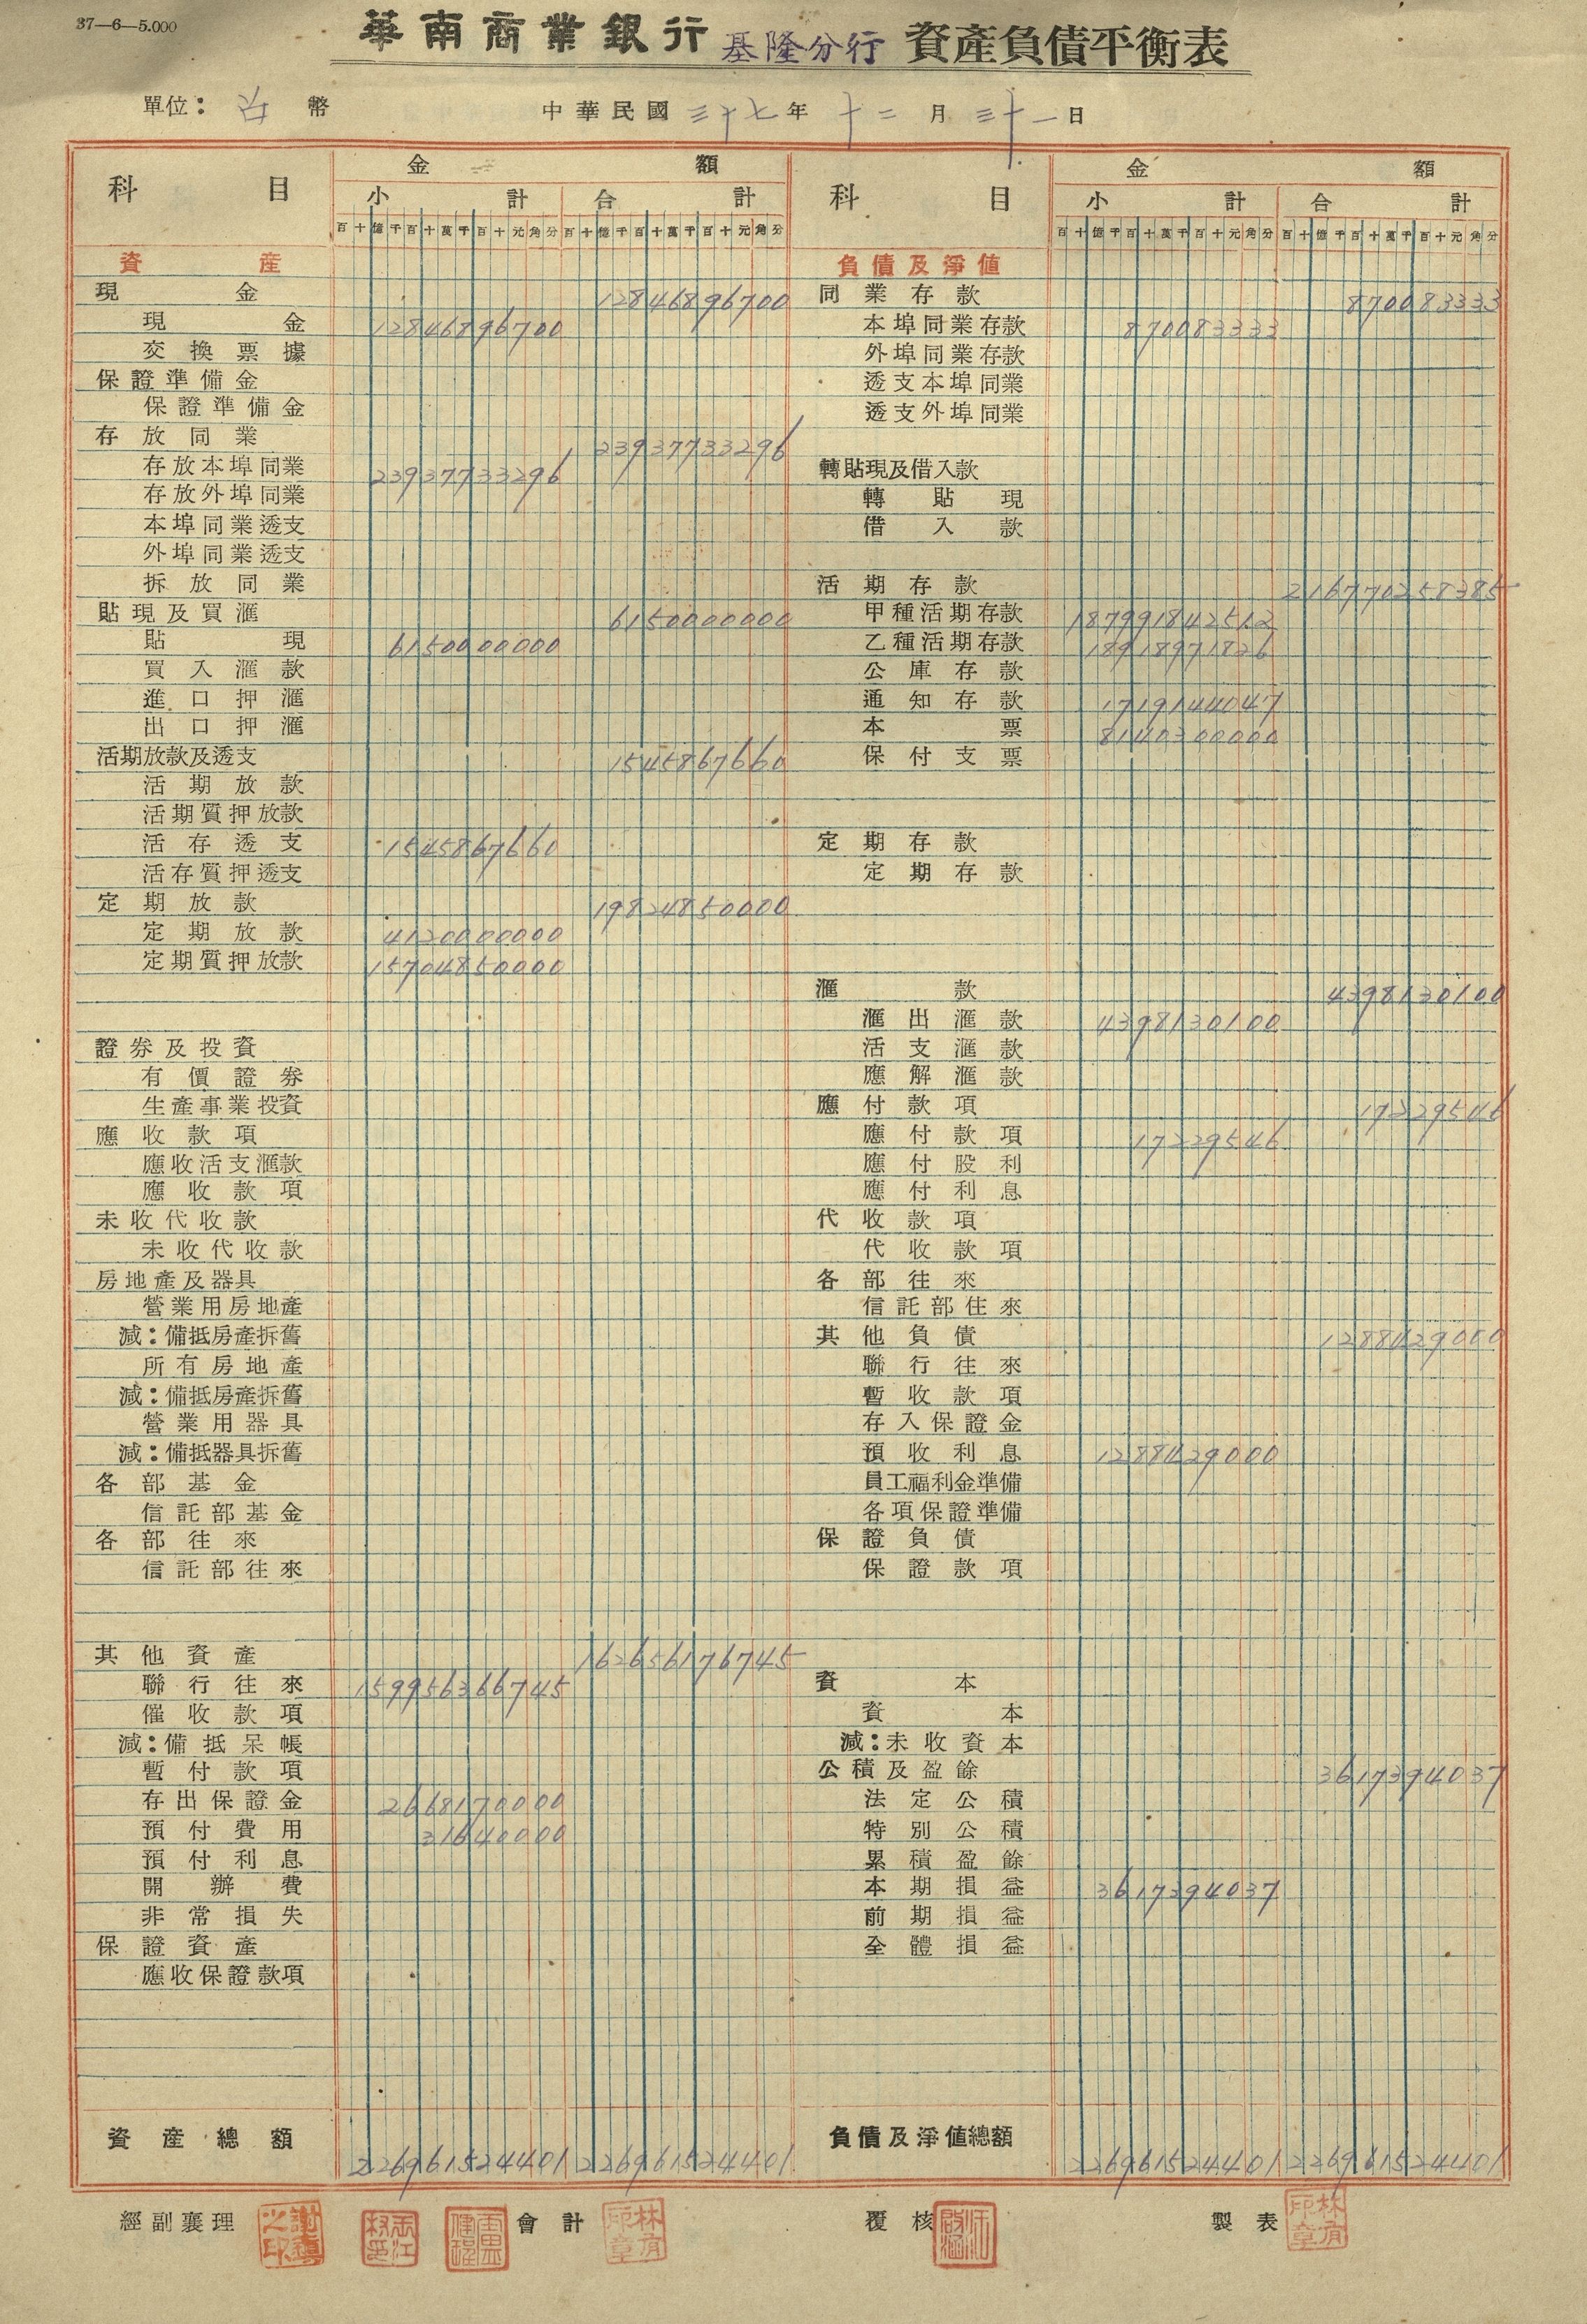 37—6—5.000
華南商業銀行 基隆分行 資產負債平衡表
單位：台幣 中華民國三十七年十二月三十一日
科目 金額
小計 合計
百十億千百十萬千百十元角分 百十億千百十萬千百十元角分
資產
現金 12846896700
現金 12846896700
交換票據
保證準備金
保證準備金
存放同業 23937733296
存放本埠同業 23937733296
存放外埠同業
本埠同業透支
外埠同業透支
拆放同業
貼現及買滙 6150000000
貼現 6150000000
買入滙款
進口押滙
出口押滙
活期放款及透支 1545867660
活期放款
活期質押放款
活存透支 1545867660
活存質押透支
定期放款 19824850000
定期放款 4120000000
定期質押放款 15704850000
證券及投資
有價證券
生產事業投資
應收款項
應收活支滙款
應收款項
未收代收款
未收代收款
房地產及器具
營業用房地產
減：備抵房產拆舊
所有房地產
減：備抵房產拆舊
營業用器具
減：備抵器具拆舊
各部基金
信託部基金
各部往來
信託部往來
其他資產 162656176745
聯行往來 159956366745
催收款項
減：備抵呆帳
暫付款項
存出保證金 2668170000
預付費用 31640000
預付利息
開辦費
非常損失
保證資產
應收保證款項
資產總額 226961524401 226961524401
科目 金額
小計 合計
百十億千百十萬千百十元角分 百十億千百十萬千百十元角分
負債及淨值
同業存款 870083333
本埠同業存款 870083333
外埠同業存款
透支本埠同業
透支外埠同業
轉貼現及借入款
轉貼現
借入款
活期存款 216770258385
甲種活期存款 187991842512
乙種活期存款 18918971826
公庫存款
通知存款 1719144047
本票 8140300000
保付支票
定期存款
定期存款
滙款 4398130100
滙出滙款 4398130100
活支滙款
應解滙款
應付款項 17229546
應付款項 17229546
應付股利
應付利息
代收款項
代收款項
各部往來
信託部往來
其他負債 1288429000
聯行往來
暫收款項
存入保證金
預收利息 1288429000
員工福利金準備
各項保證準備
保證負債
保證款項
資本
資本
減：未收資本
公積及盈餘 3617394037
法定公積
特別公積
累積盈餘
本期損益 3617394037
前期損益
全體損益
負債及淨值總額 226961524401 226961524401
經副襄理 會計 覆核 製表